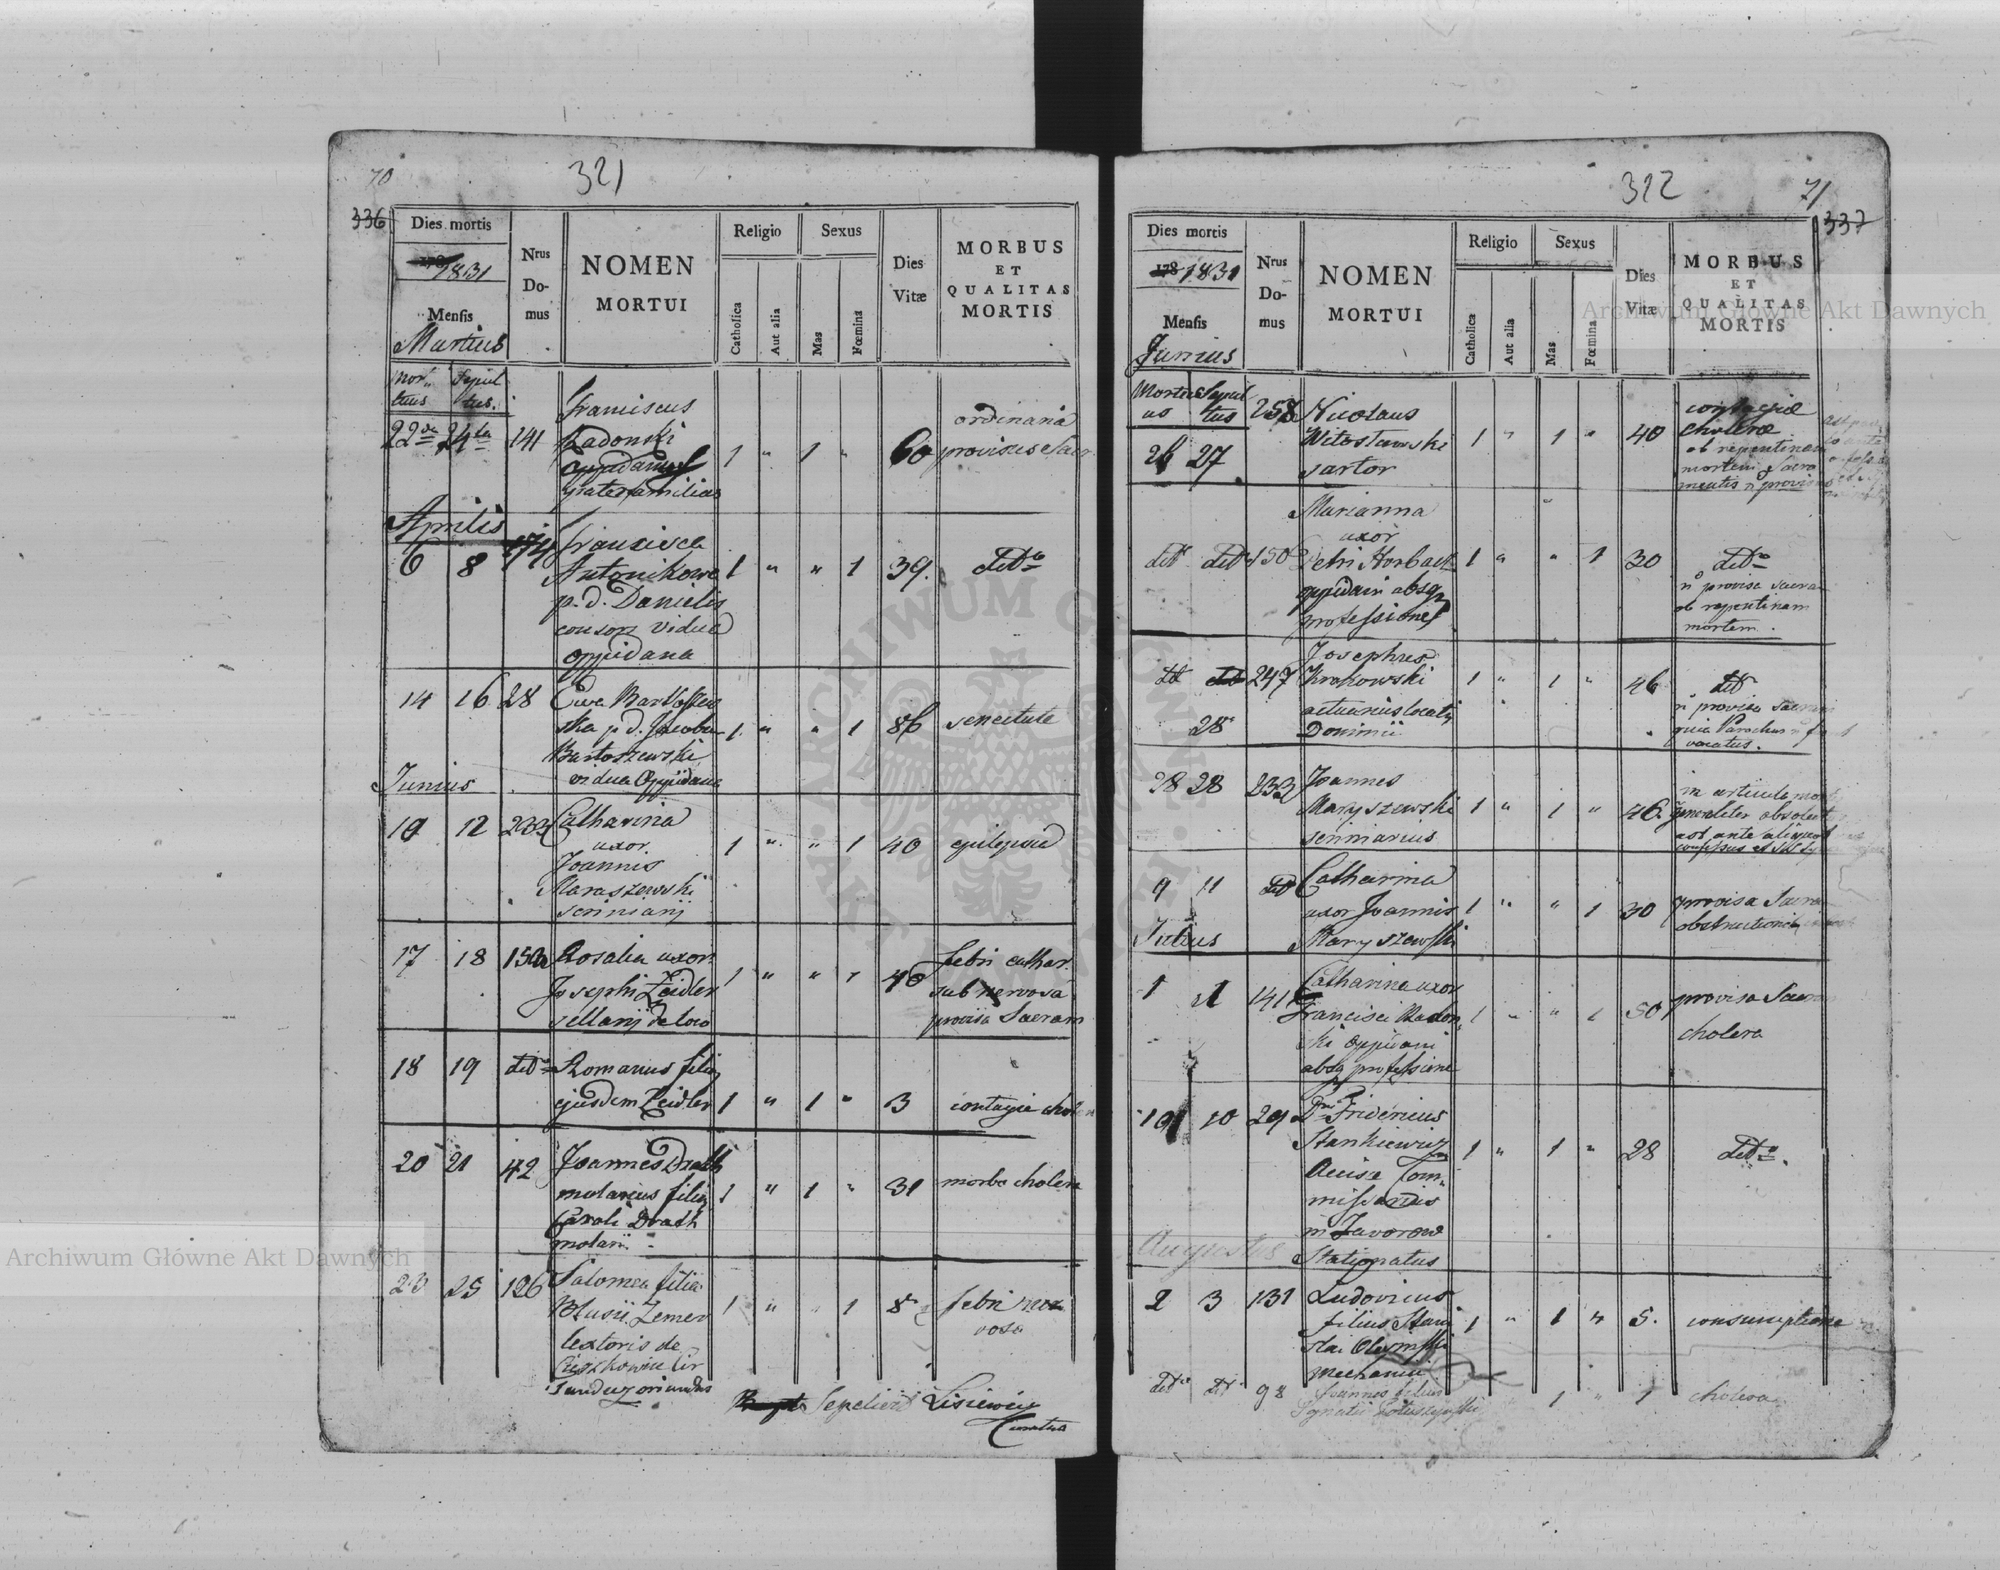 70
321
336
Dies mortis
1831
Mensis
Martius
Nrus
Do-
mus
NOMEN
MORTUI
Religio
Catholica
Aut alia
Sexus
Mas
Fœmina
Dies
Vitæ
MORBUS
ET
QUALITAS
MORTIS
Mor-
tuus
Sepul
tus.
22 24 141 Franciscus
Radonski
paterfamilias
1 " 1 " 60
ordinaria
provisus Sacr
Aprilis
6 8 174 Francisca
Antonikowa
p. d. Danielis
consors vidua
oppidana
1 " " 1 39. detto
14 16 28 Eva Bartoszew
ska p. d. Jacobi
Bartoszewski
vidua Oppidana
1 " " 1 86 senectute
Junius
10 12 233 Catharina
uxor
Joannis
Maraszewski
scriniarij
1 " " 1 40 epilepsia
17 18 150 Rosalia uxor
Josephi Zeidler
sellarij de loco
1 " " 1 40
febri cathar.
sub nervosa
provisa Sacram
18 19 detto Romanus filius
ejusdem Zeidler
1 " 1 " 3 contagie chol
20 21 42 Joannes Drath
molarius filius
Caroli Drath
molarii
1 " 1 " 31 morbo cholera
23 25 126 Salomea filia
Blasii Zemer
textoris de
Cir
oriundus
1 " " 1 8 febri ner
vosa
Sepelivit Lisiewicz
Curatus
322
71
337
Dies mortis
1831
Mensis
Junius
Nrus
Do-
mus
NOMEN
MORTUI
Religio
Catholica
Aut alia
Sexus
Mas
Fœmina
Dies
Vitæ
MORBUS
ET
QUALITAS
MORTIS
Mortu
us
Sepul
tus
26 27 258 Nicolaus
Witosławski
sartor
1 " 1 " 40
contagiæ
choleræ
ob repentinam
mortem Sacra
mentis n provisus
detto detto 150 Marianna
uxor
Petri Horbacz
oppidani absq
professione
1 " " 1 30 detto
no provisa sacram
ob repentinam
mortem.
detto 28 247 Josephus
Krakowski
actuarius locatis
Dominii
1 " 1 " 46 detto
n provisa sacram
quia Parochus n fuit
vocatus.
28 28 233 Joannes
Maryszewski
scriniarius
1 " 1 " 46.
in articulo mort
generaliter absolut
ante
confessus
9 11 detto Catharina
uxor Joannis
Maryszewski
1 " " 1 30
provisa Sacram
obstructione
Julius
1 1 141 Catharina uxor
Francisci Radon
ski oppidani
absq professione
1 " " 1 50
provisa Sacram
cholera
10 10 29 Dnus Fridericus
Stankiewicz
Accisæ Com-
missarius
in Javorow
Stationatus
1 " 1 " 28 detto.
Augustus
2 3 131 Ludovicus
filius Stanis
lai
mechanici
1 " 1 " 5. consumptione
detto detto 98 Joannes filius
Ignatii
1 " 1 cholera
Archiwum Główne Akt Dawnych
Archiwum Główne Akt Dawnych
ARCHIWUM GŁÓWNE AKT DAWNYCH